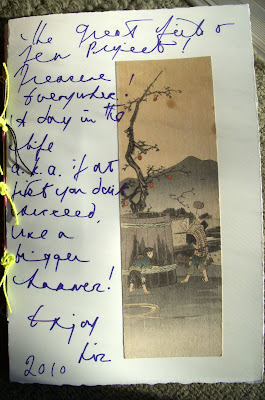 The great gift of
Zen Project!
Treasure
Everywhere!
A day in the
life
a.k.a. if at
first you don't
succeed,
use a
bigger
hammer!
Enjoy
Liz
2010